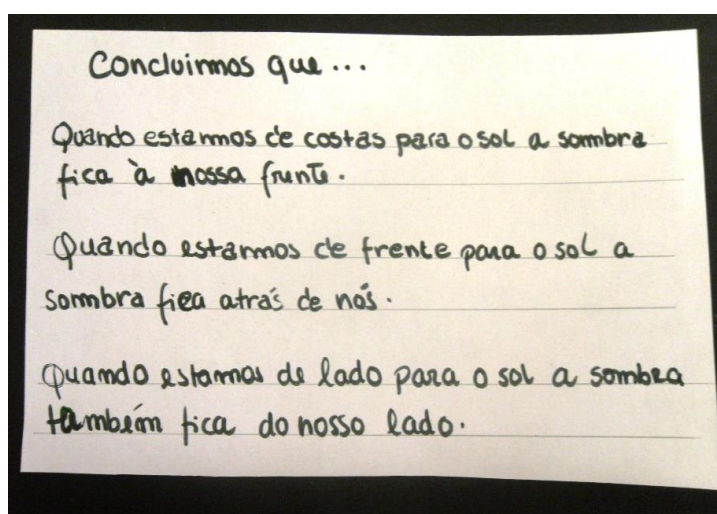 Concluimos que...
Quando estamos de costas para o sol a sombra
fica à nossa frente.
Quando estamos de frente para o sol a
sombra fica atrás de nós.
Quando estamos de lado para o sol a sombra
também fica do nosso lado.